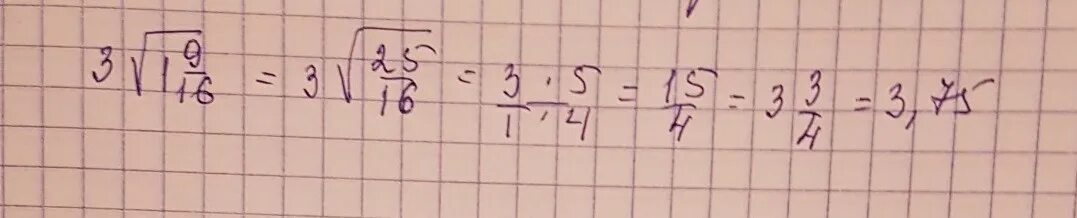 3√1 9/16 = 3√25/16 = 3/1 · 5/4 = 15/4 = 3 3/4 = 3,75